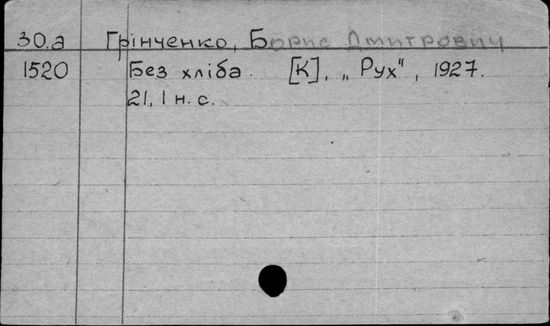 30.а Грінченко, Борис Дмитрович
1520 Без хліба. [К], „Рух", 1927.
21, 1 н. с.